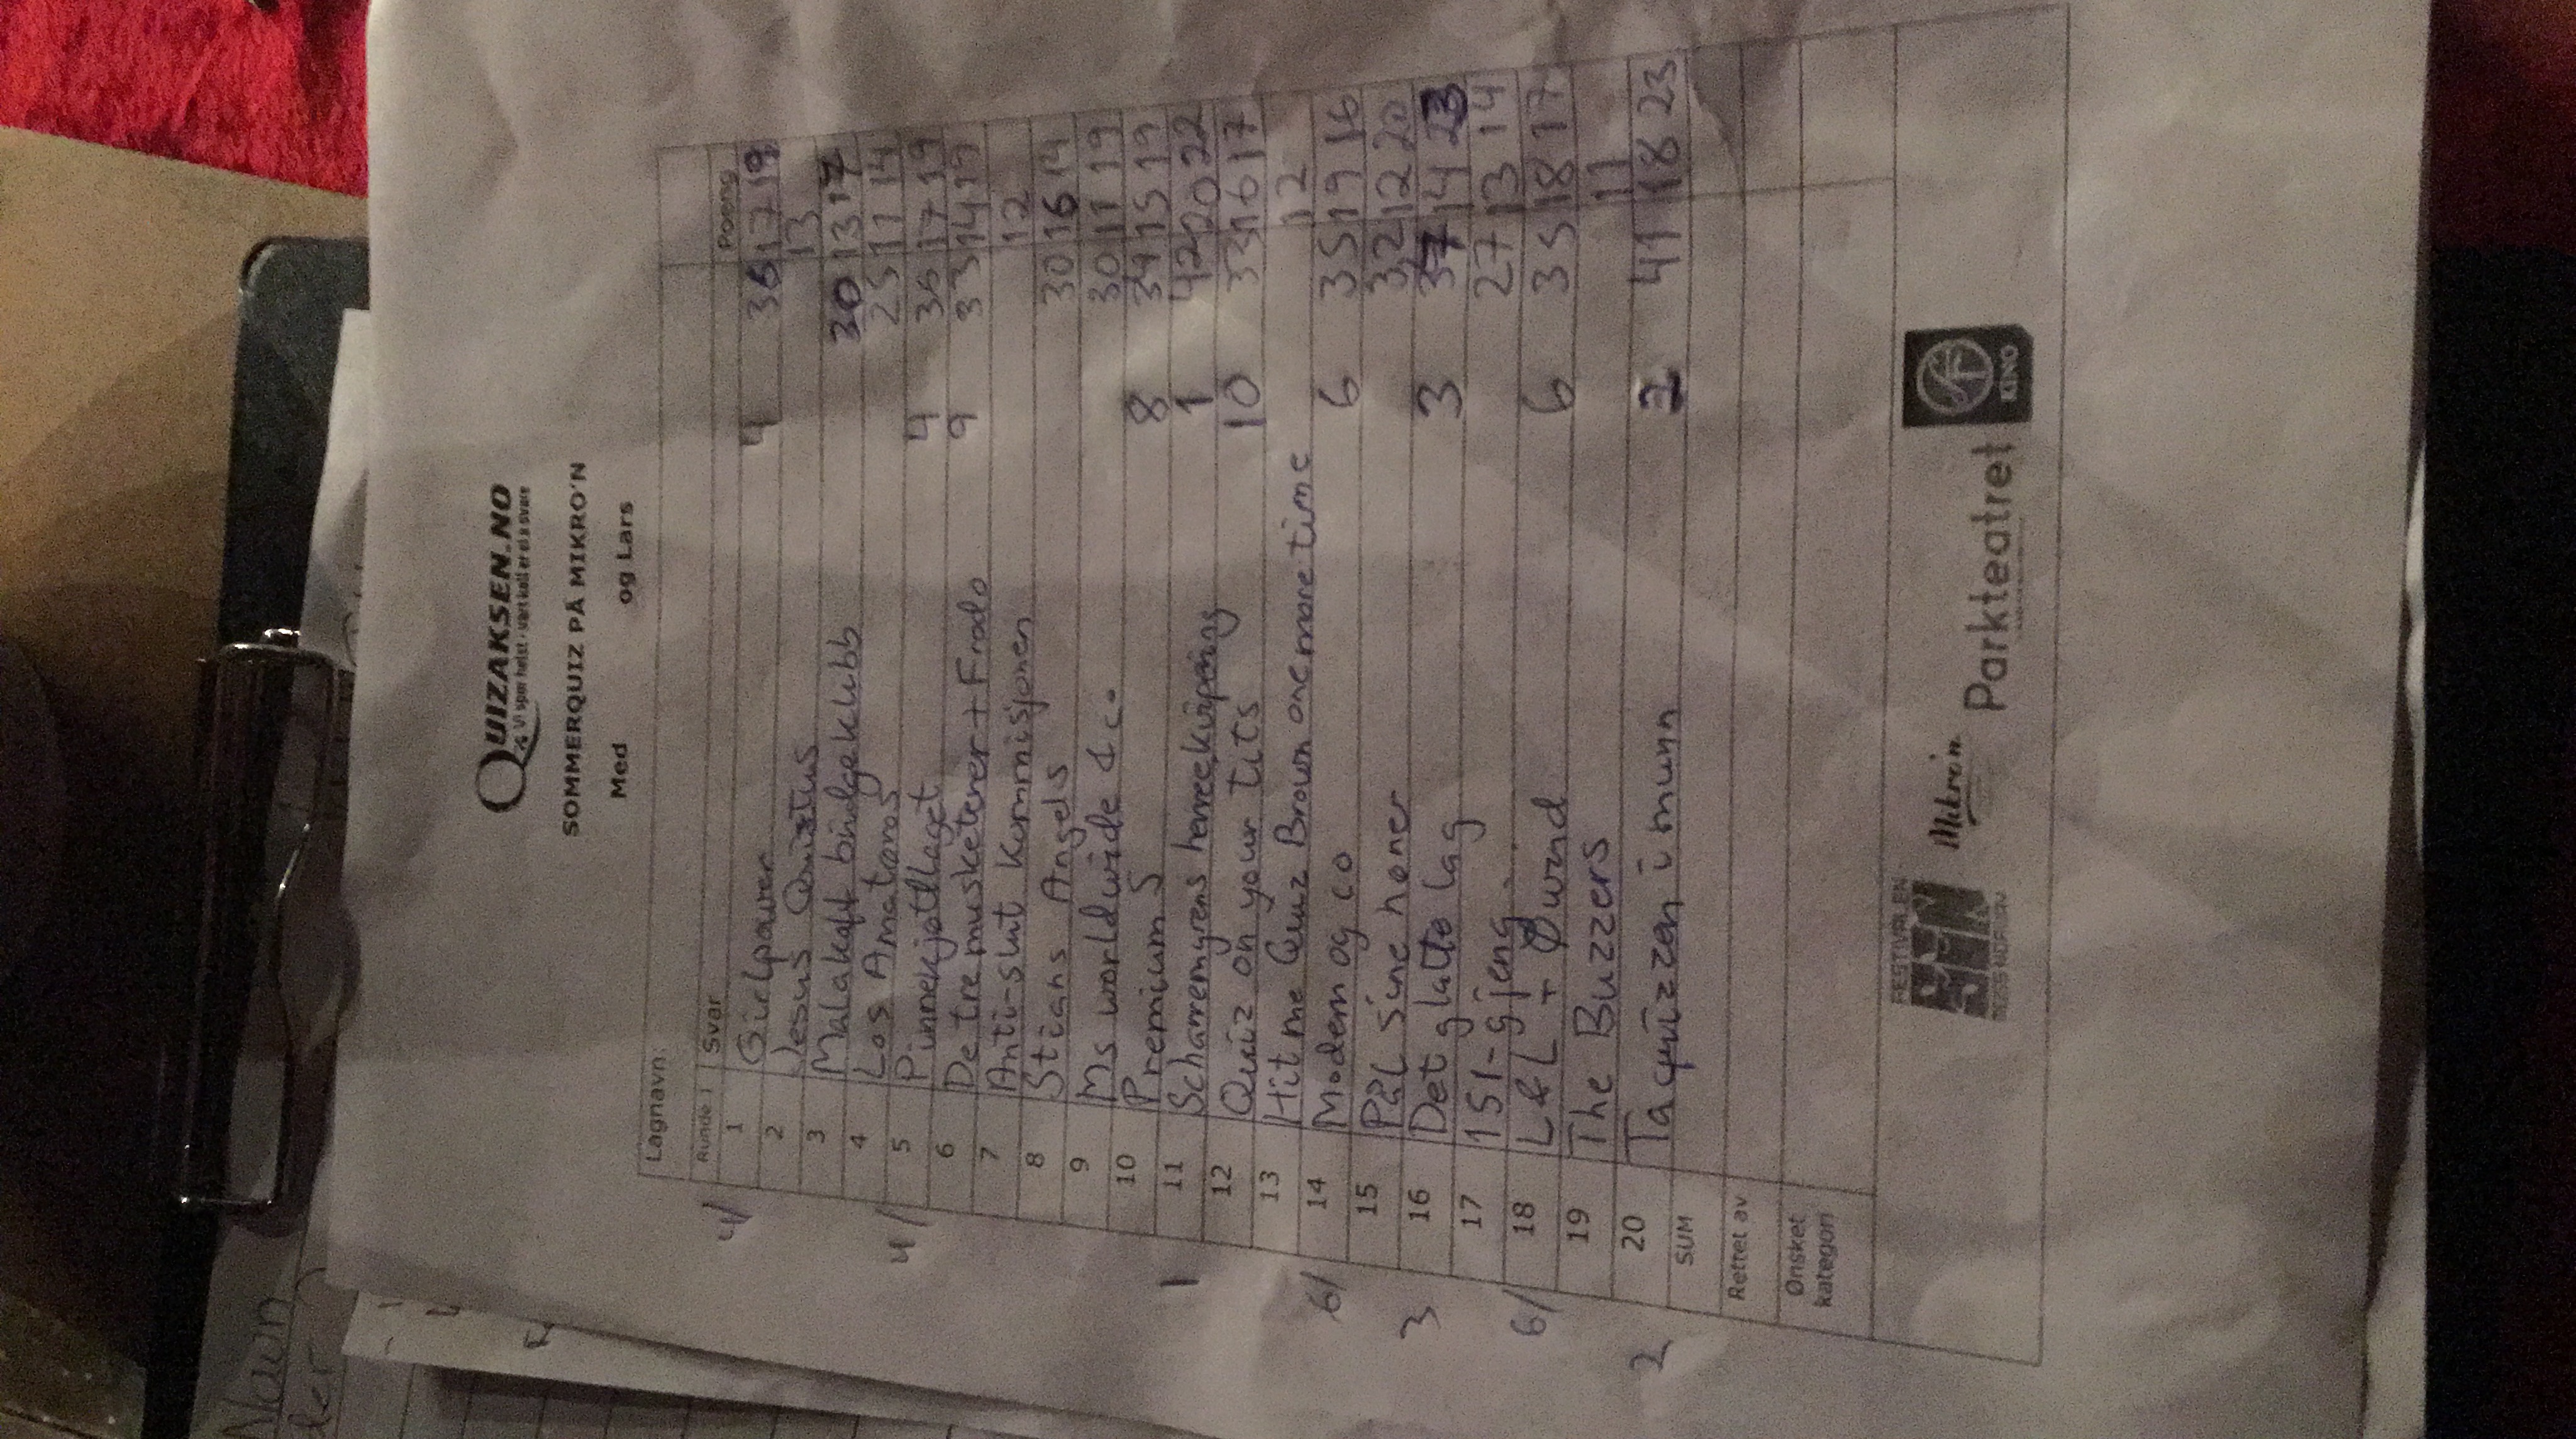 QUIZAKSEN.NO
Vi spør helst - vårt kall er ei å svare
SOMMERQUIZ PÅ MIKRO'N
Med og Lars
Lagnavn:
Runde 1 Svar Poeng
4/ 1 Girlpower 4 36 17 19
2 Jesus Quistus 13
3 Malakoff bridgeklubb 30 13 17
4 Los Amatøros 25 11 14
4/ 5 Pinnekjøttlaget 4 36 17 19
6 De tre musketerer + Frodo 9 33 14 19
7 Anti-slut Kommisjonen 12
8 Stians Angels 30 16 14
9 Ms worldwide & co 30 11 19
10 Premium 5 8 34 15 19
1 11 Scharremyrens herreekvipering 1 42 20 22
12 Quiz on your tits 10 33 16 17
13 Hit me Quiz Brown one more time 12
6/ 14 Modem og co 6 35 19 16
15 Pål sine høner 32 12 20
3 16 Det glatte lag 3 37 14 23
17 151-gjeng 27 13 14
6/ 18 L & L + Øwind 6 35 18 17
19 The Buzzers 11
2 20 Ta quizzen i munn 2 41 18 23
SUM
Rettet av
Ønsket
kategori
FESTIVALEN
Mikro'n
Parkteatret
KINO
Navn